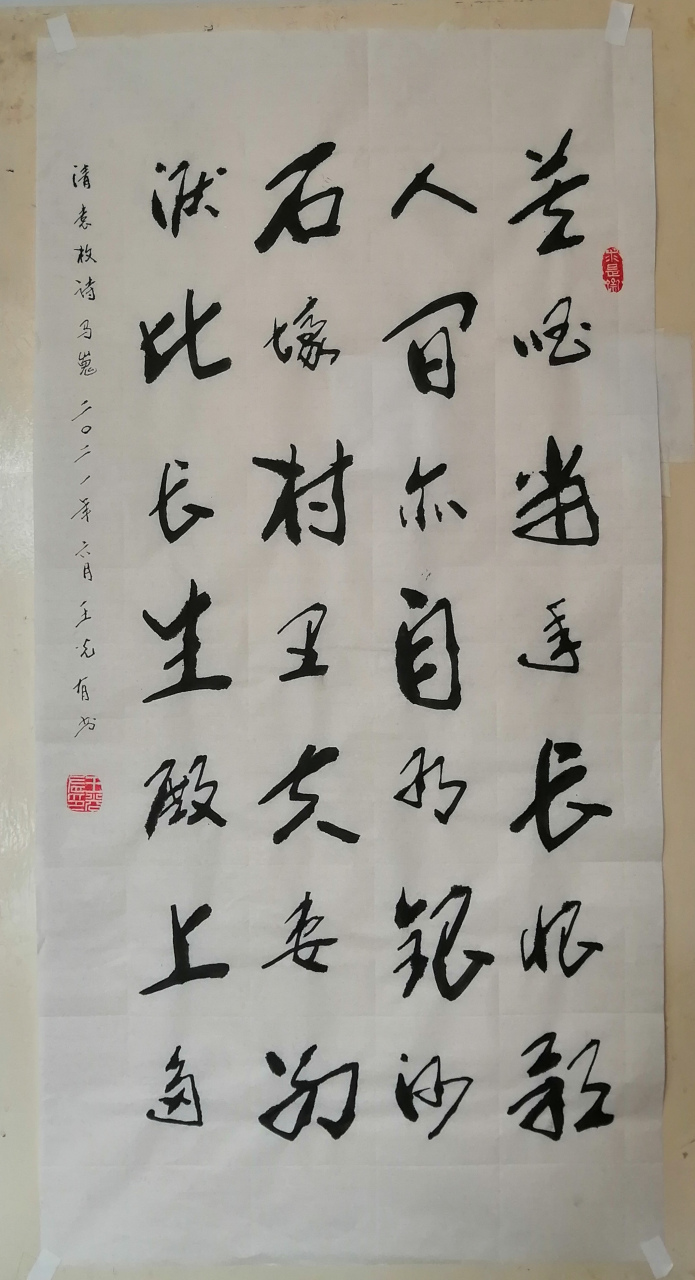 莫唱當年长恨歌
人间亦自有銀河
石壕村里夫妻别
淚比长生殿上多
清袁枚诗马嵬 二〇二一年六月 王光有书